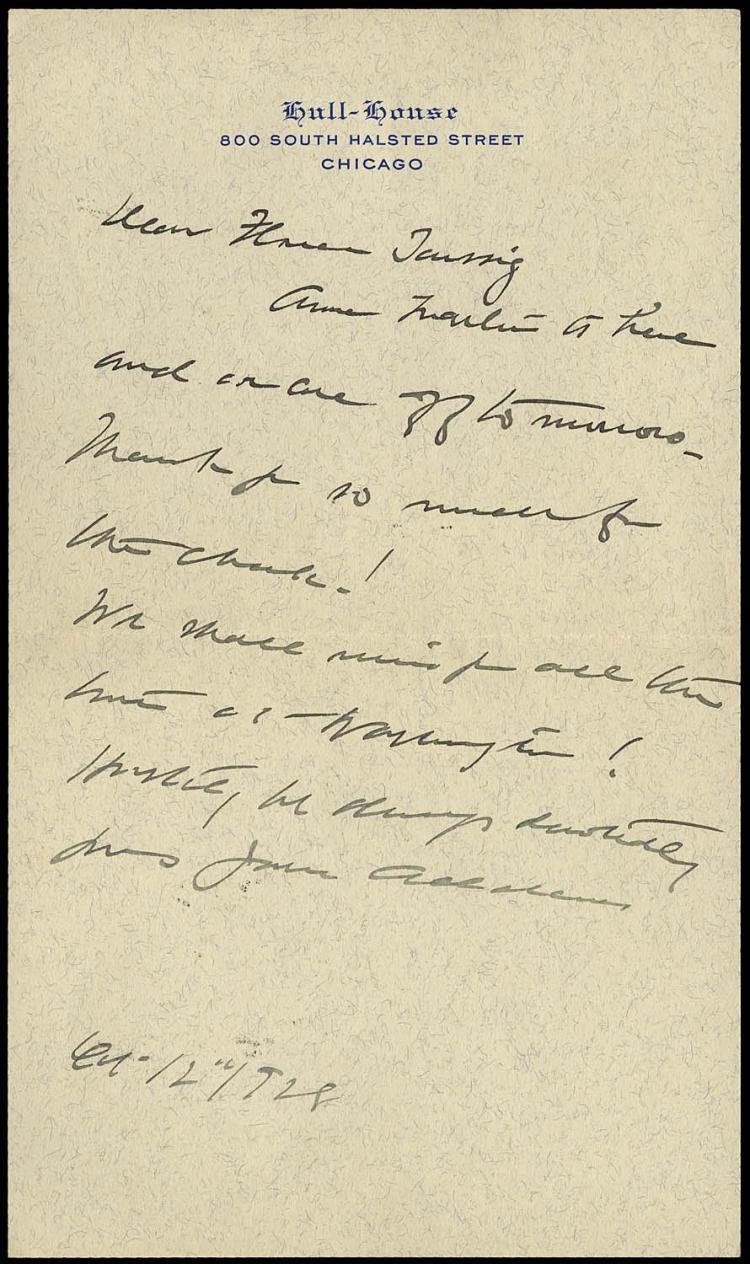 Hull-House
800 SOUTH HALSTED STREET
CHICAGO
Dear Florence Taussig
Anne Martin is here
and we are off tomorrow –
Thank you so much for
the check!
We shall miss you all the
time at Washington!
Hastily, but always devotedly
yours Jane Addams
Oct. 12" 1928